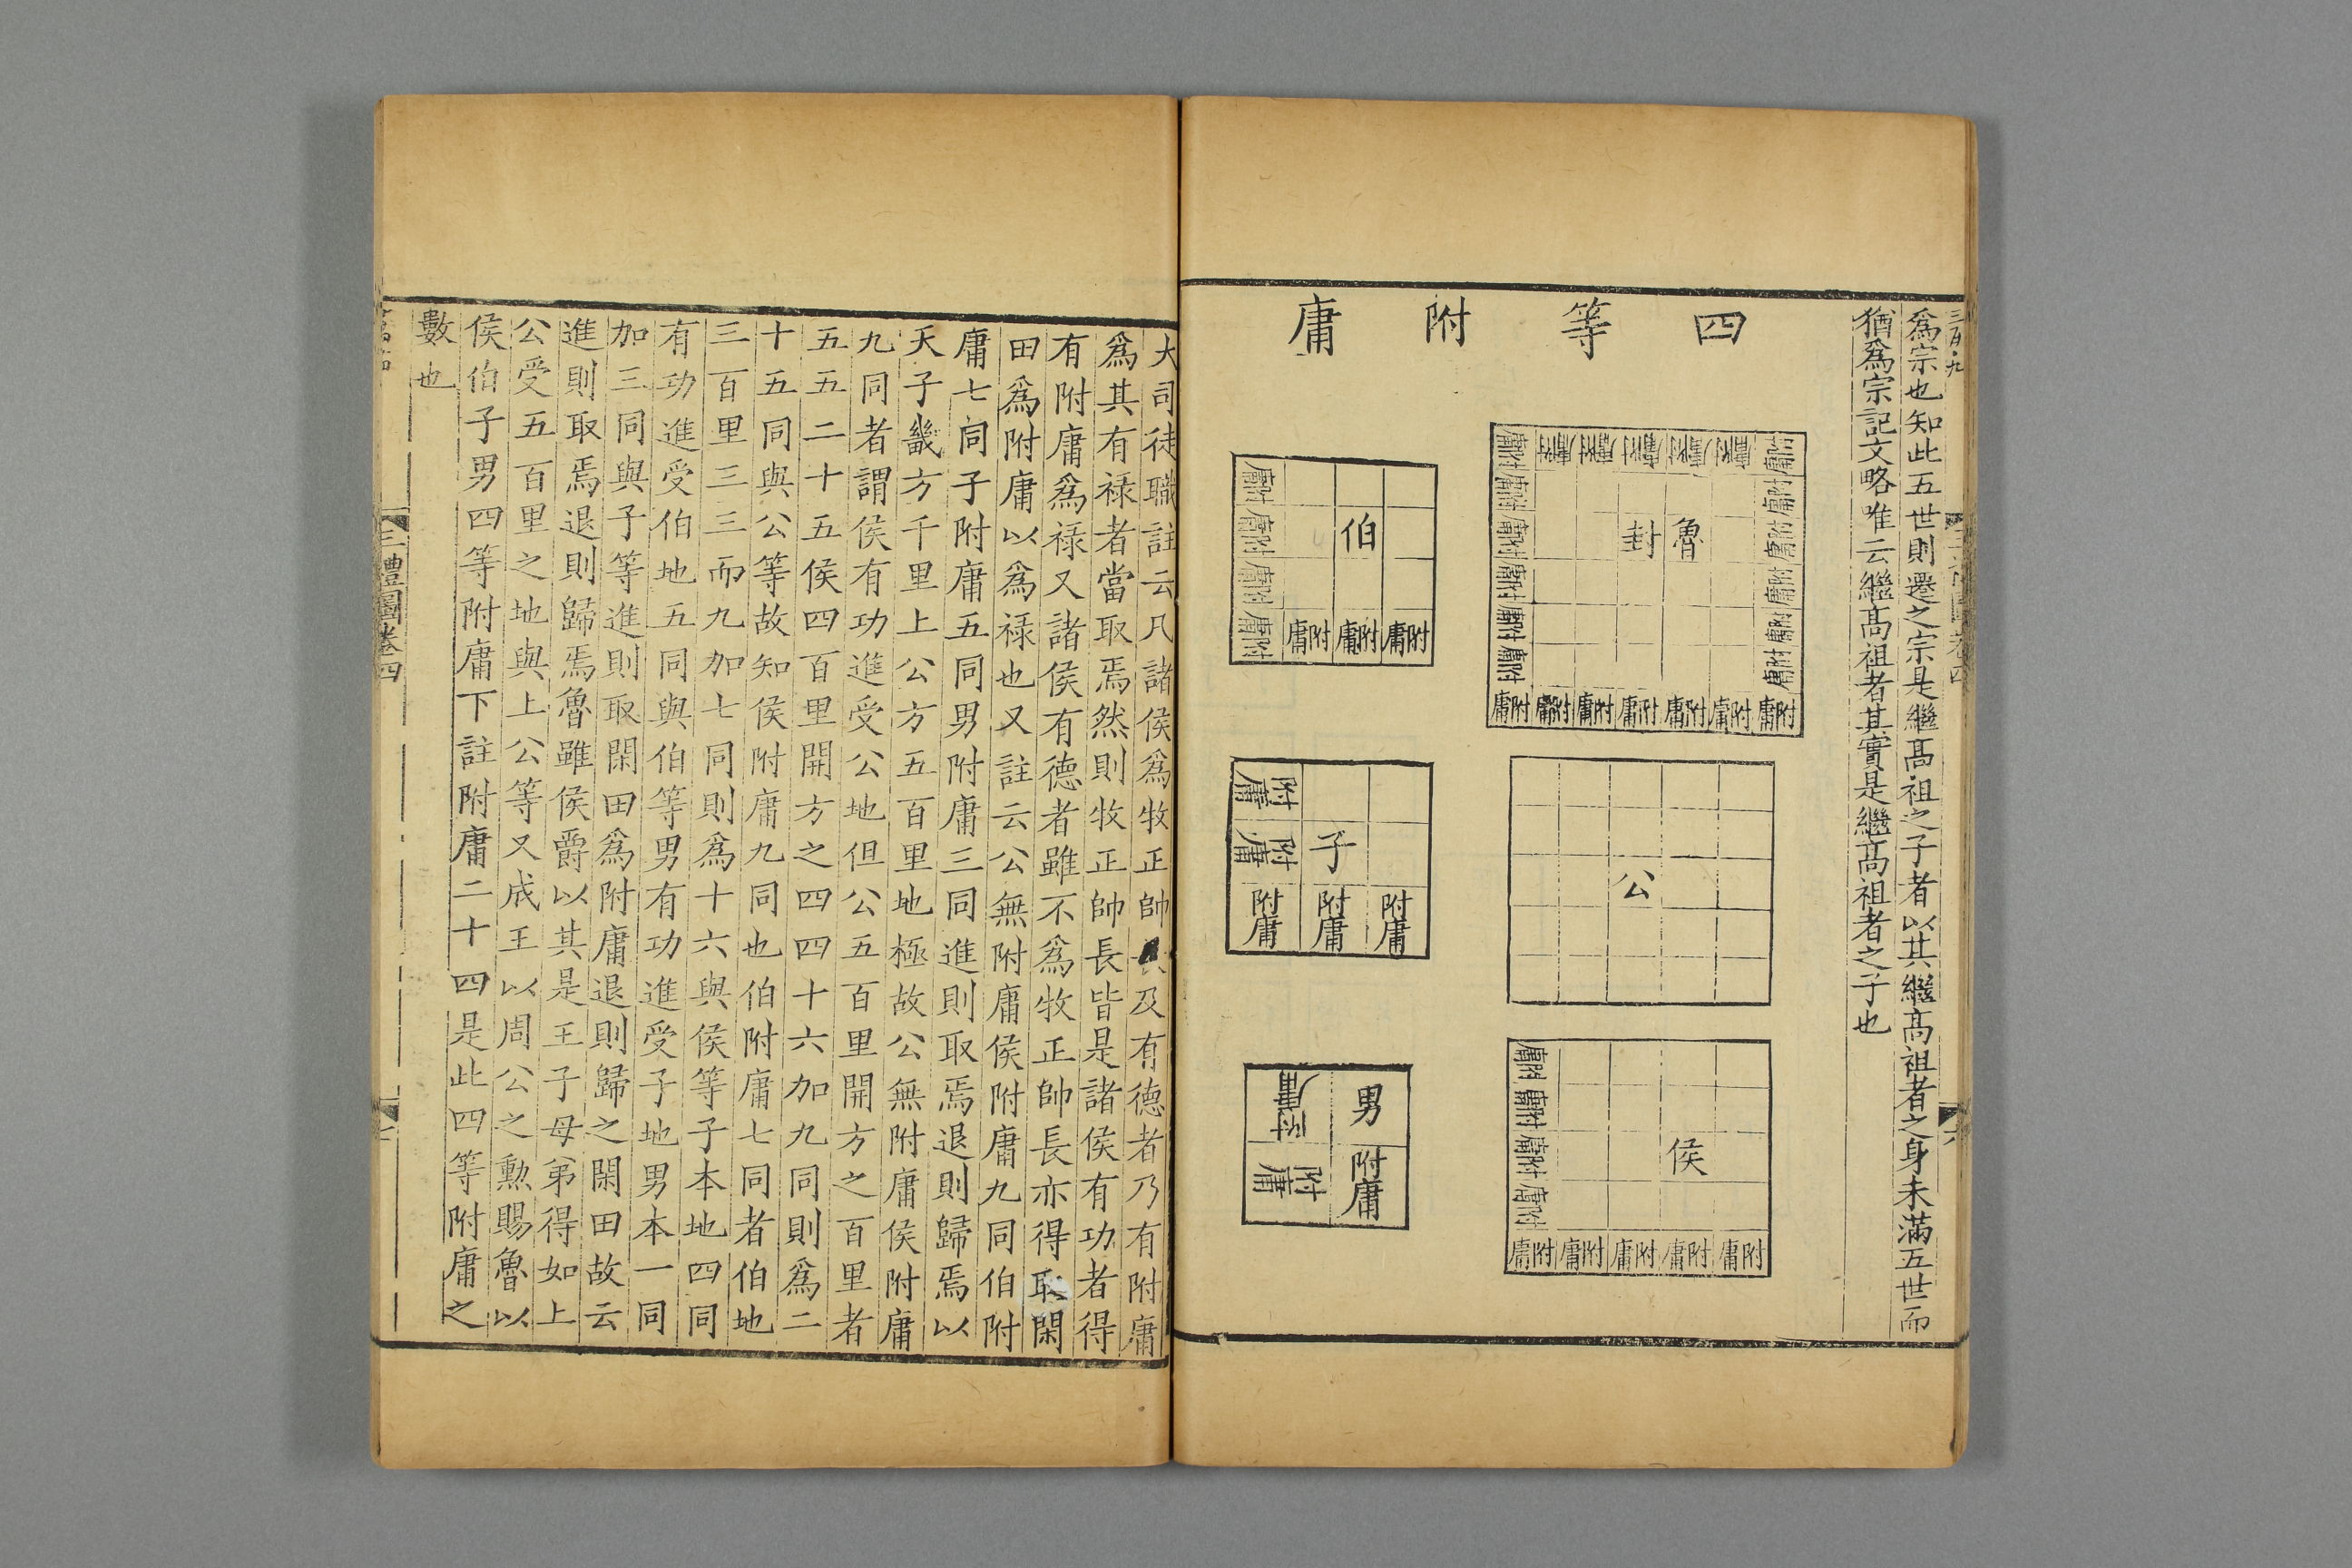 爲宗也知此五世則遷之宗是繼髙祖之子者以其繼髙祖者之身未滿五世而
猶爲宗記文略唯云繼髙祖者其實是繼髙祖者之子也
四等附庸
附庸 附庸 附庸 附庸 附庸 附庸 附庸
附庸 附庸
附庸 魯封 附庸
附庸 附庸
附庸 附庸
附庸 附庸
附庸 附庸 附庸 附庸 附庸 附庸 附庸
公
附庸
附庸
侯 附庸
附庸
附庸 附庸 附庸 附庸 附庸
附庸
伯 附庸
附庸
附庸 附庸 附庸 附庸
附庸
子 附庸
附庸 附庸 附庸
男 附庸
附庸 附庸
大司徒職註云凡諸侯爲牧正帥 及有德者乃有附庸
爲其有禄者當取焉然則牧正帥長皆是諸侯有功者得
有附庸爲禄又諸侯有德者雖不爲牧正帥長亦得取閑
田爲附庸以爲禄也又註云公無附庸侯附庸九同伯附
庸七同子附庸五同男附庸三同進則取焉退則歸焉以
天子畿方千里上公方五百里地極故公無附庸侯附庸
九同者謂侯有功進受公地但公五百里開方之百里者
五五二十五侯四百里開方之四四十六加九同則爲二
十五同與公等故知侯附庸九同也伯附庸七同者伯地
三百里三三而九加七同則爲十六與侯等子本地四同
有功進受伯地五同與伯等男有功進受子地男本一同
加三同與子等進則取閑田爲附庸退則歸之閑田故云
進則取焉退則歸焉魯雖侯爵以其是王子母弟得如上
公受五百里之地與上公等又成王以周公之勲賜魯以
侯伯子男四等附庸下註附庸二十四是此四等附庸之
數也
三禮圖卷四